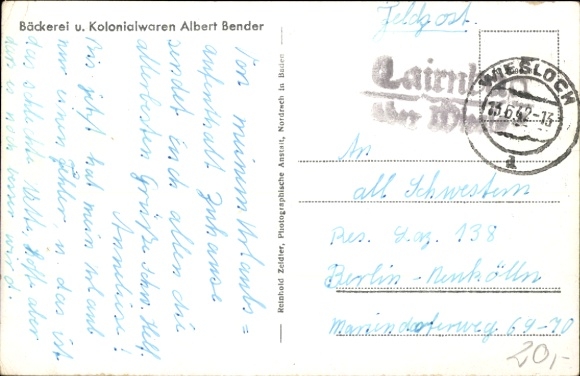 Bäckerei u. Kolonialwaren Albert Bender
Von meinem Urlaubs=
aufenthalt Zuhause
sendet euch allen die
allerbesten Grüße Schw. Helf.
Anneliese!
Bis jetzt hat mein Urlaub
nur einen Fehler u. das ist
das schlechte Wetter, hoffe aber
das es noch immer wird.
Reinhold Zeidler, Photographische Anstalt, Nordrach in Baden
Feldpost.
WIESLOCH
13.6.42-13
d
An
all Schwestern
Res. Laz. 138
Berlin-Neukölln
Mariendorferweg 69-70
20,-